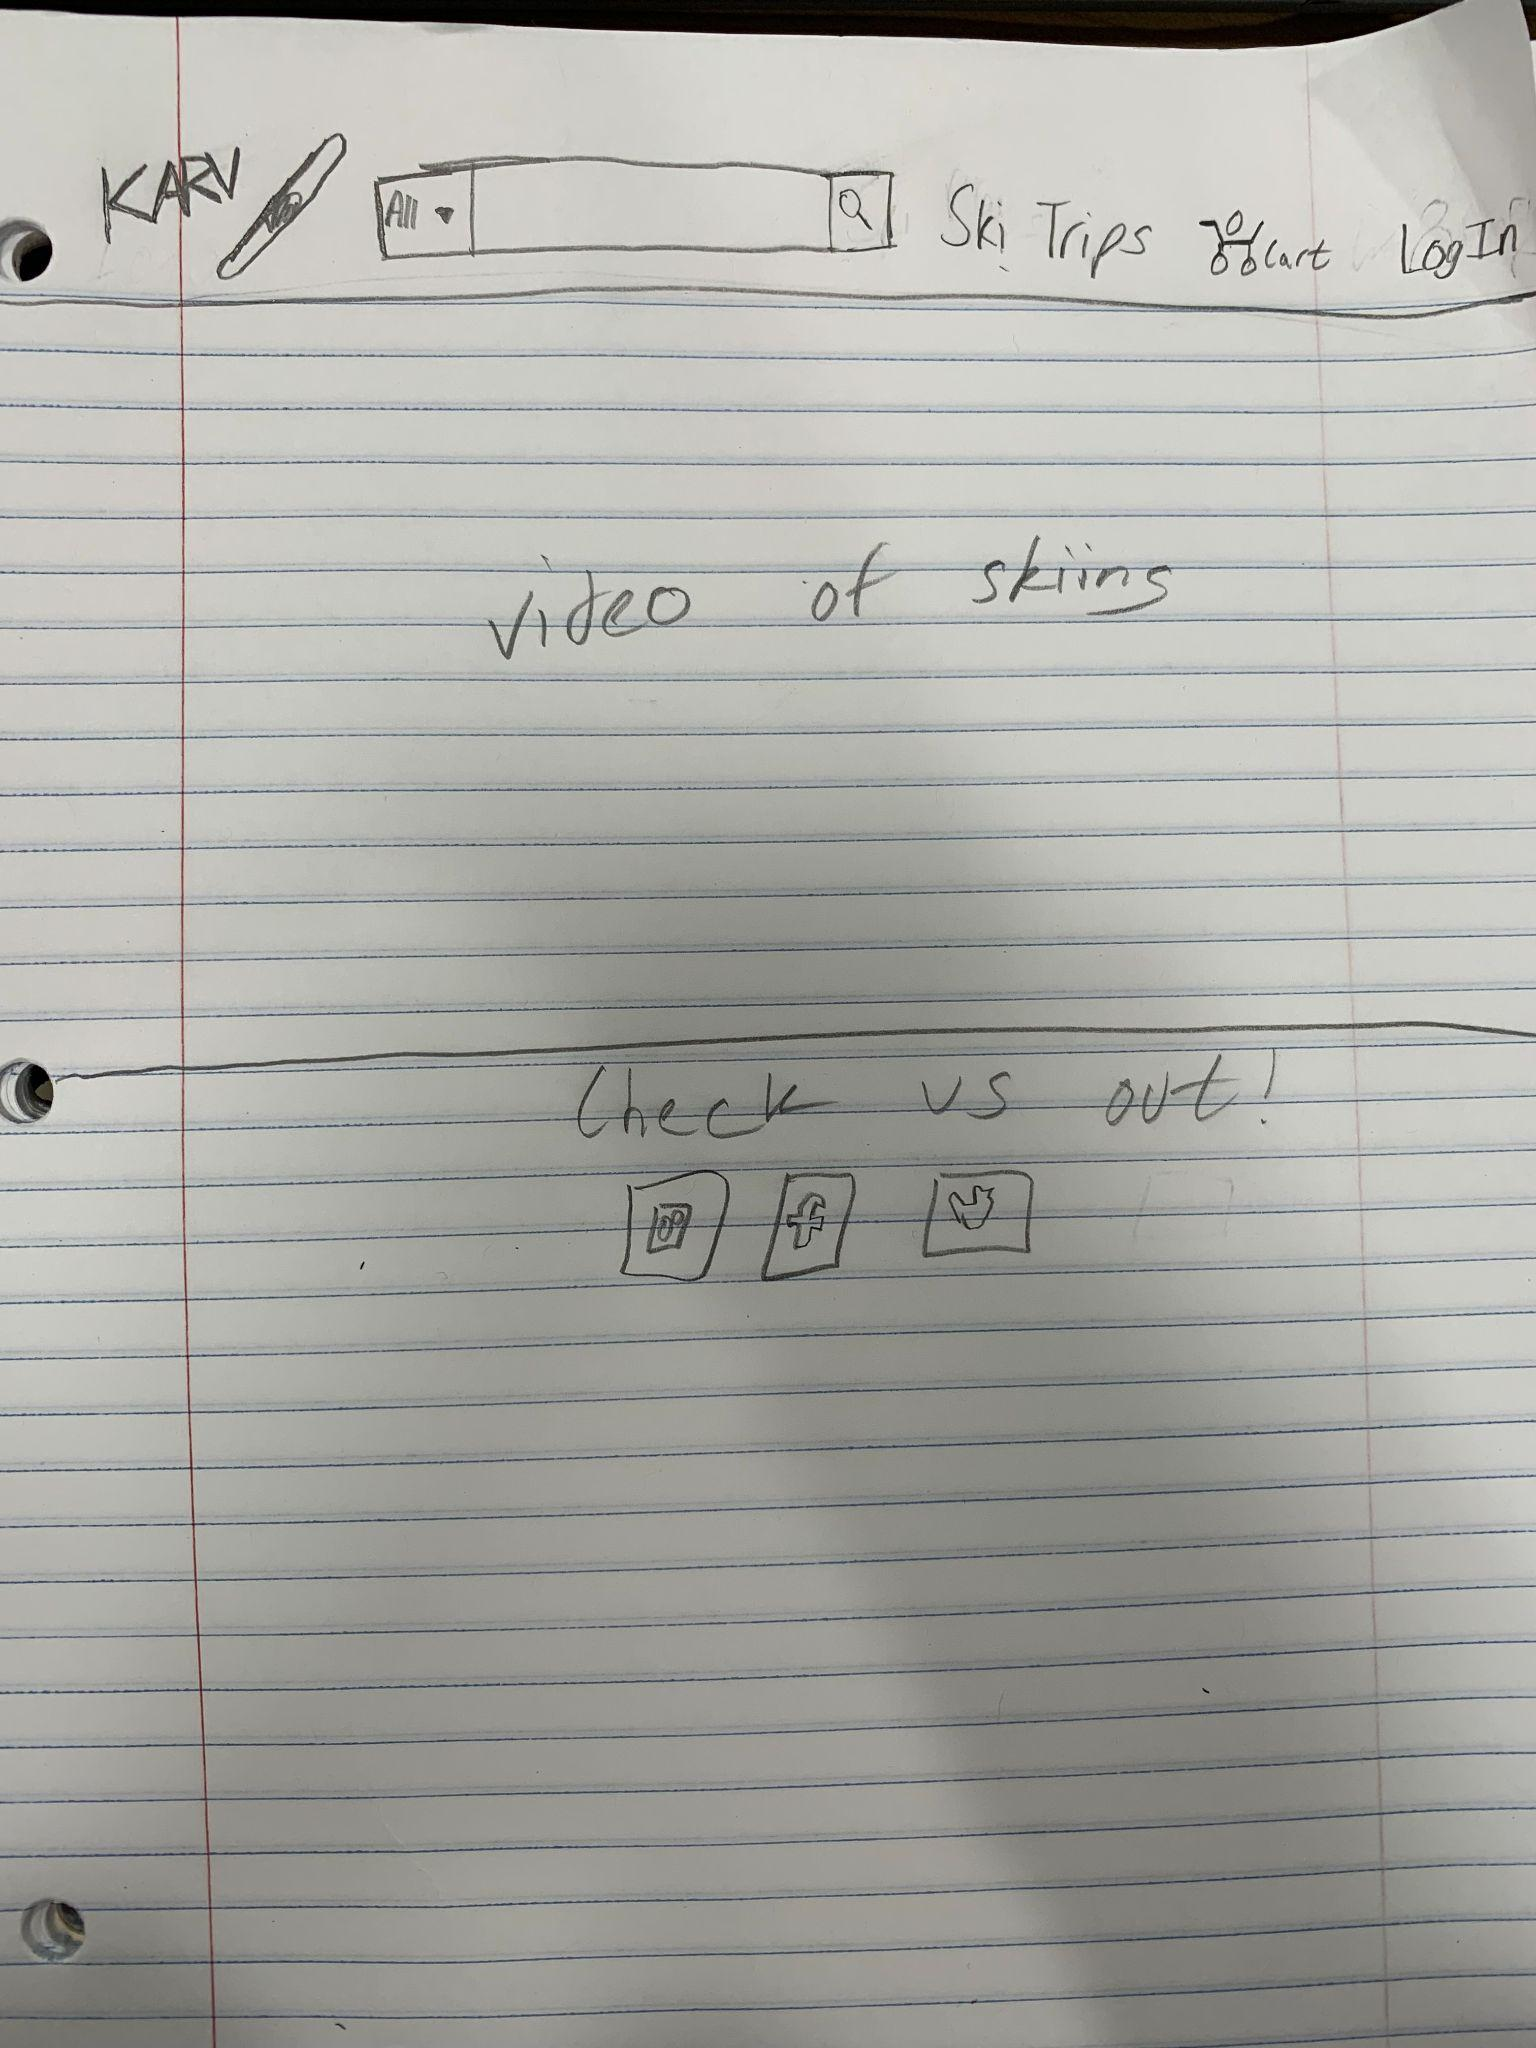 KARV
All
Ski Trips
Cart
Log In
video of skiing
Check us out!
f